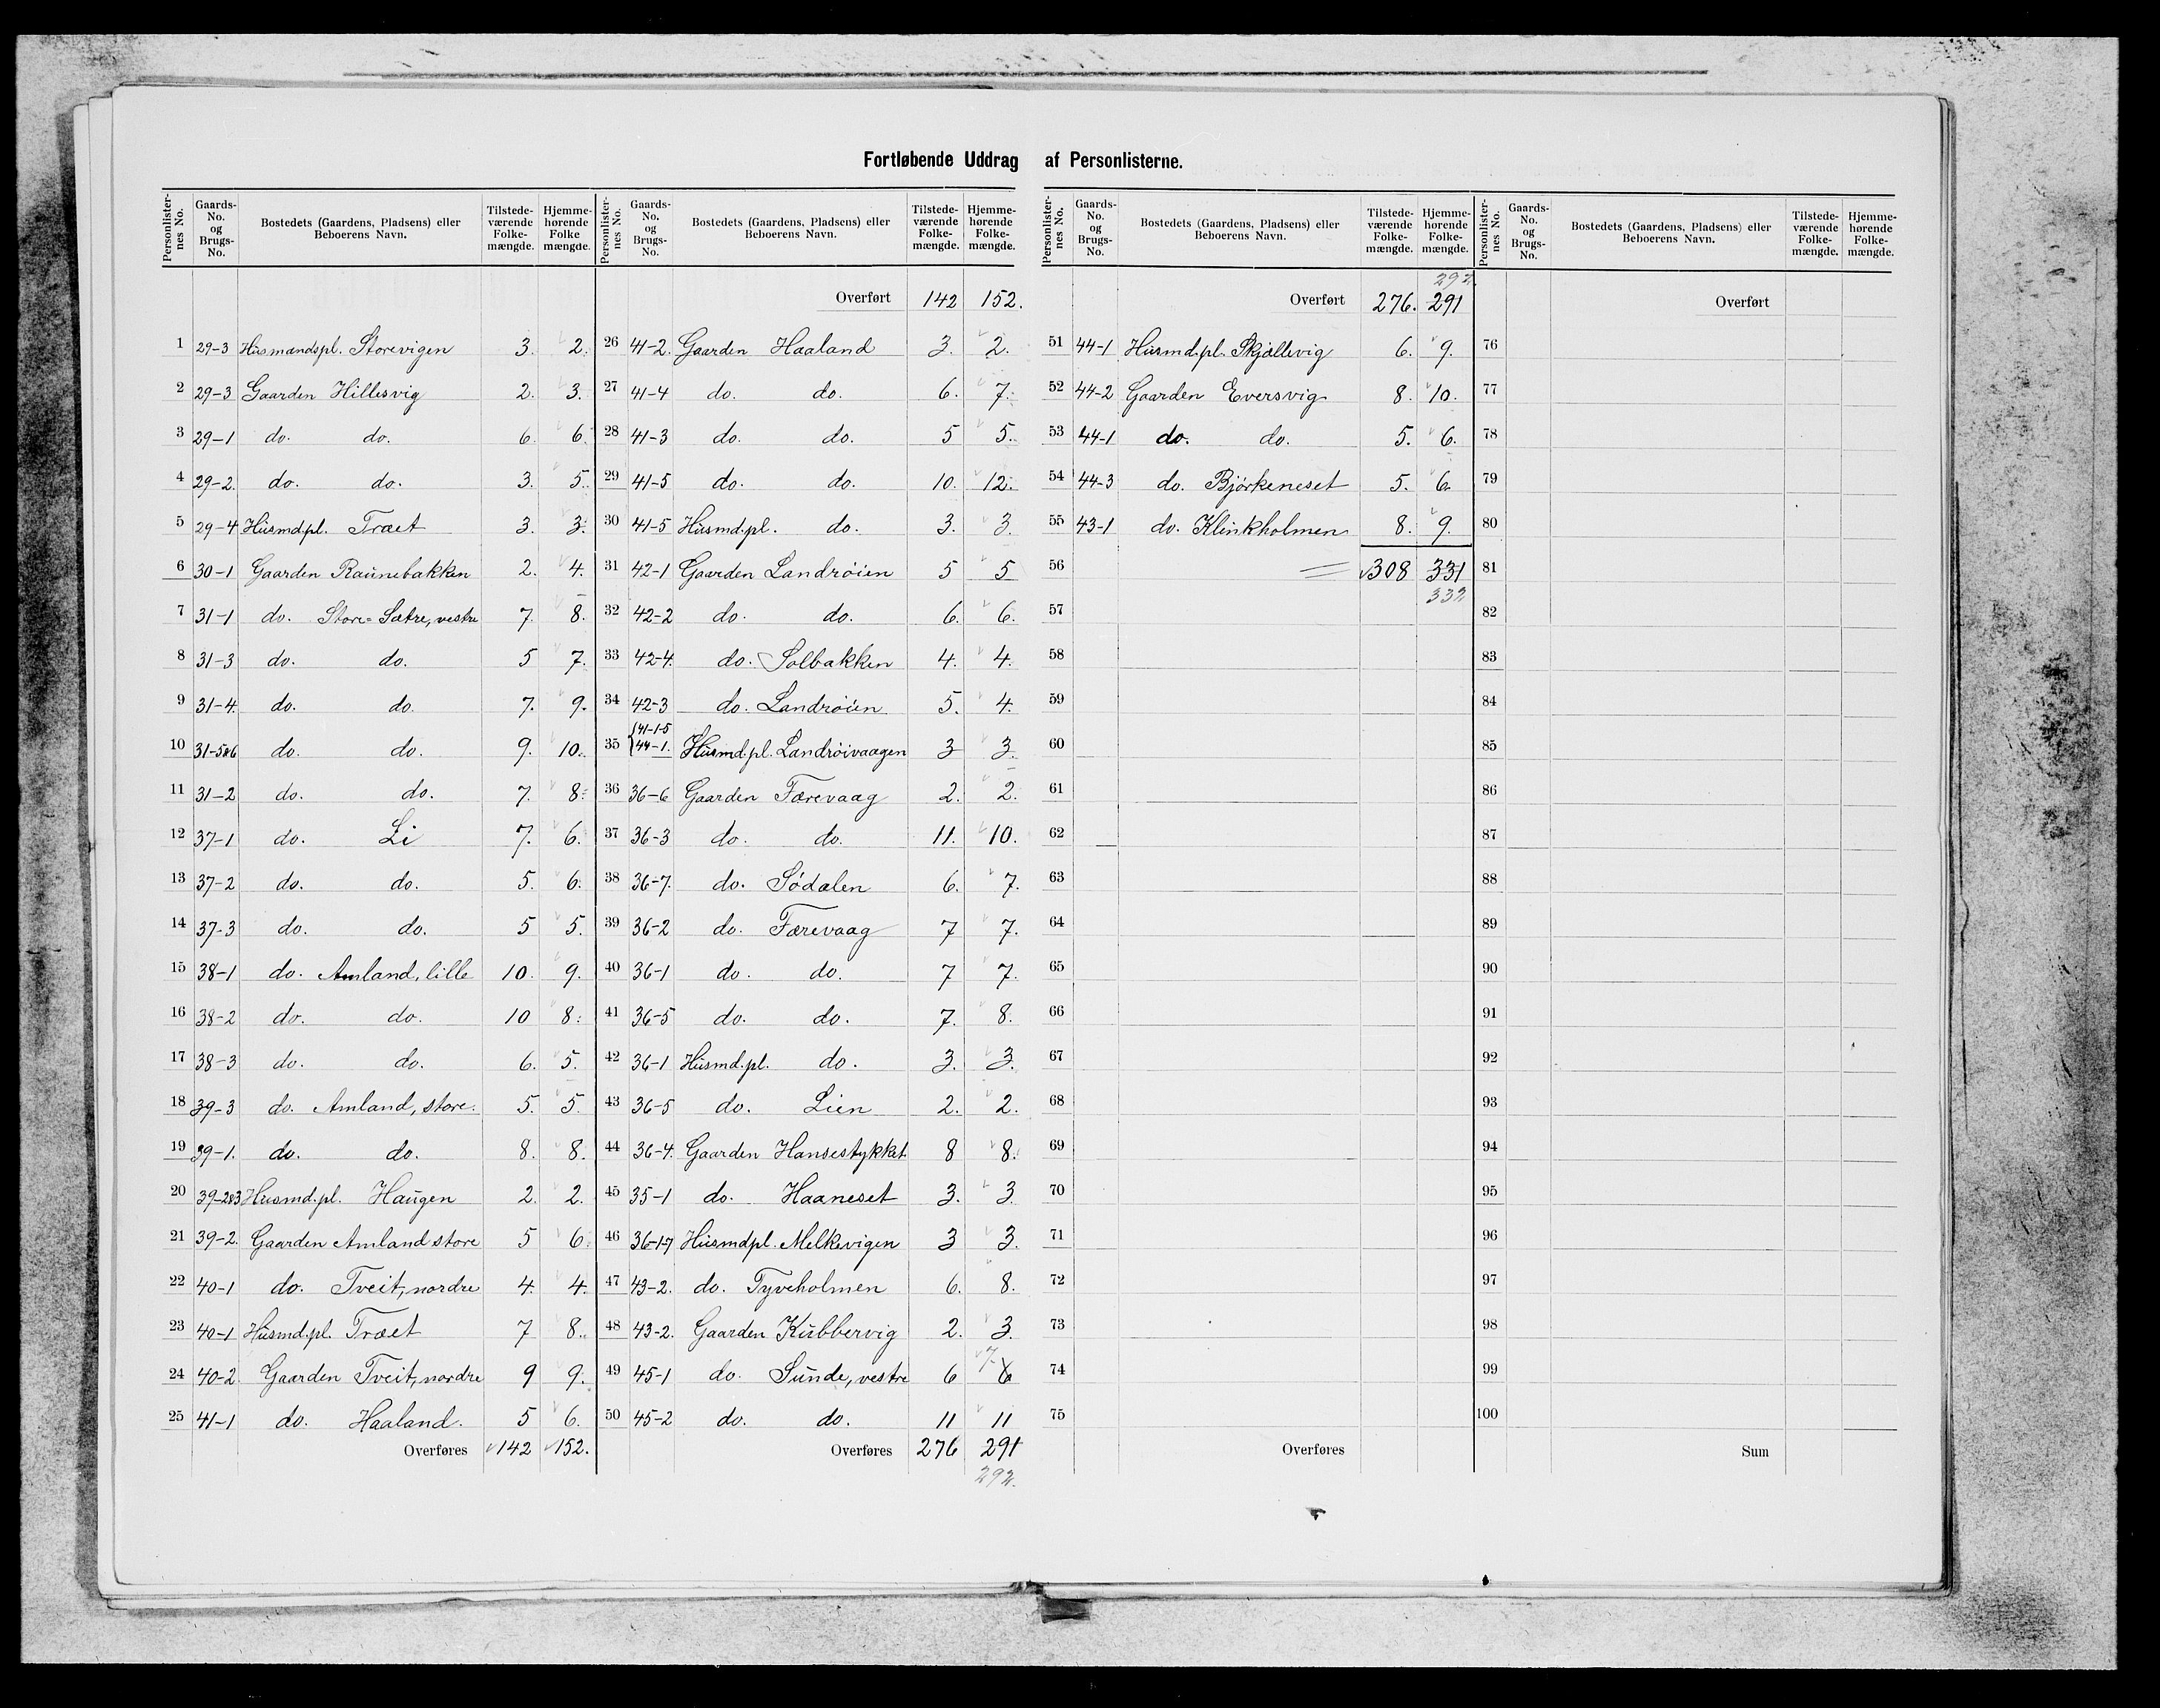 Fortløbende Uddrag af Personlisterne.
Personlister-nes No. | Gaards-No. og Brugs-No. | Bostedets (Gaardens, Pladsens) eller Beboerens Navn. | Tilstede-værende Folke-mængde. | Hjemme-hørende Folke mængde.
1 29-3 Husmandspl. Storevigen 3. 2.
2 29-3 Gaarden Hillesvig 2. 3.
3 29-1 do. do. 6. 6.
4 29-2. do. do. 3. 5.
5 29-4 Husmd.pl. Træet 3. 3.
6 30-1 Gaarden Raunebakken 2. 4.
7 31-1 do. Store-Sætre, vestre 7. 8.
8 31-3 do. do. 5 7.
9 31-4. do. do. 7. 9.
10 31-5&6 do. do. 9. 10.
11 31-2 do. do. 7. 8.
12 37-1 do. Li 7. 6.
13 37-2 do. do. 5. 6.
14 37-3 do. do. 5 5.
15 38-1 do. Amland, lille 10. 9.
16 38-2 do. do. 10 8.
17 38-3 do. do. 6. 5.
18 39-3 do. Amland, store. 5. 5.
19 39-1. do. do. 8. 8.
20 39-2&3 Husmd.pl. Haugen 2. 2.
21 39-2. Gaarden Amland store 5 6.
22 40-1 do. Tveit, nordre 4. 4.
23 40-1 Husmd.pl. Træet 7 8.
24 40-2. Gaarden Tveit, nordre 9 9.
25 41-1 do. Haaland. 5 6.
Overføres 142 152.
Personlister-nes No. | Gaards-No. og Brugs-No. | Bostedets (Gaardens, Pladsens) eller Beboerens Navn. | Tilstede-værende Folke-mængde. | Hjemme-hørende Folke-mængde.
Overført 142 152.
26 41-2. Gaarden Haaland 3. 2.
27 41-4 do. do. 6. 7.
28 41-3 do. do. 5 5.
29 41-5 do. do. 10. 12.
30 41-5 Husmd.pl. do. 3. 3.
31 42-1 Gaarden Landröien 5 5
32 42-2 do. do. 6. 6.
33 42-4. do. Solbakken 4. 4.
34 42-3 do. Landröien 5. 4.
35 {41-1-5 44-1. Husmd.pl. Landröivaagen 3 3.
36 36-6 Gaarden Færevaag 2. 2.
37 36-3 do. do. 11. 10.
38 36-7. do. Södalen 6. 7.
39 36-2 do. Færevaag 7 7.
40 36-1 do. do. 7 7.
41 36-5 do. do. 7. 8.
42 36-1 Husmd.pl. do. 3. 3.
43 36-5 do. Lien 2. 2.
44 36-4. Gaarden Hansestykket 8 8.
45 35-1 do. Haaneset 3. 3.
46 36-1-7 Husmdpl. Melkevigen 3 3.
47 43-2. do. Tyveholmen 6. 8.
48 43-2. Gaarden Kubbervig 2. 3.
49 45-1 do. Sunde, vestre 6 7. 6
50 45-2 do. do. 11 11
Overføres 276 291
292.
Personlister-nes No. | Gaards-No. og Brugs-No. | Bostedets (Gaardens, Pladsens) eller Beboerens Navn. | Tilstede-værende Folke-mængde. | Hjemme-hørende Folke-mængde.
292
Overført 276. 291
51 44-1 Husmd.pl. Skjællevig 6. 9.
52 44-2 Gaarden Eversvig 8. 10.
53 44-1 do. do. 5. 6.
54 44-3 do. Bjørkeneset 5. 6.
55 43-1 do. Klinkholmen 8. 9.
56 308 331
57 332
58
59
60
61
62
63
64
65
66
67
68
69
70
71
72
73
74
75
Overføres
Personlister-nes No. | Gaards-No. og Brugs-No. | Bostedets (Gaardens, Pladsens) eller Beboerens Navn. | Tilstede-værende Folke-mængde. | Hjemme-hørende Folke-mængde.
Overført
76
77
78
79
80
81
82
83
84
85
86
87
88
89
90
91
92
93
94
95
96
97
98
99
100
Sum